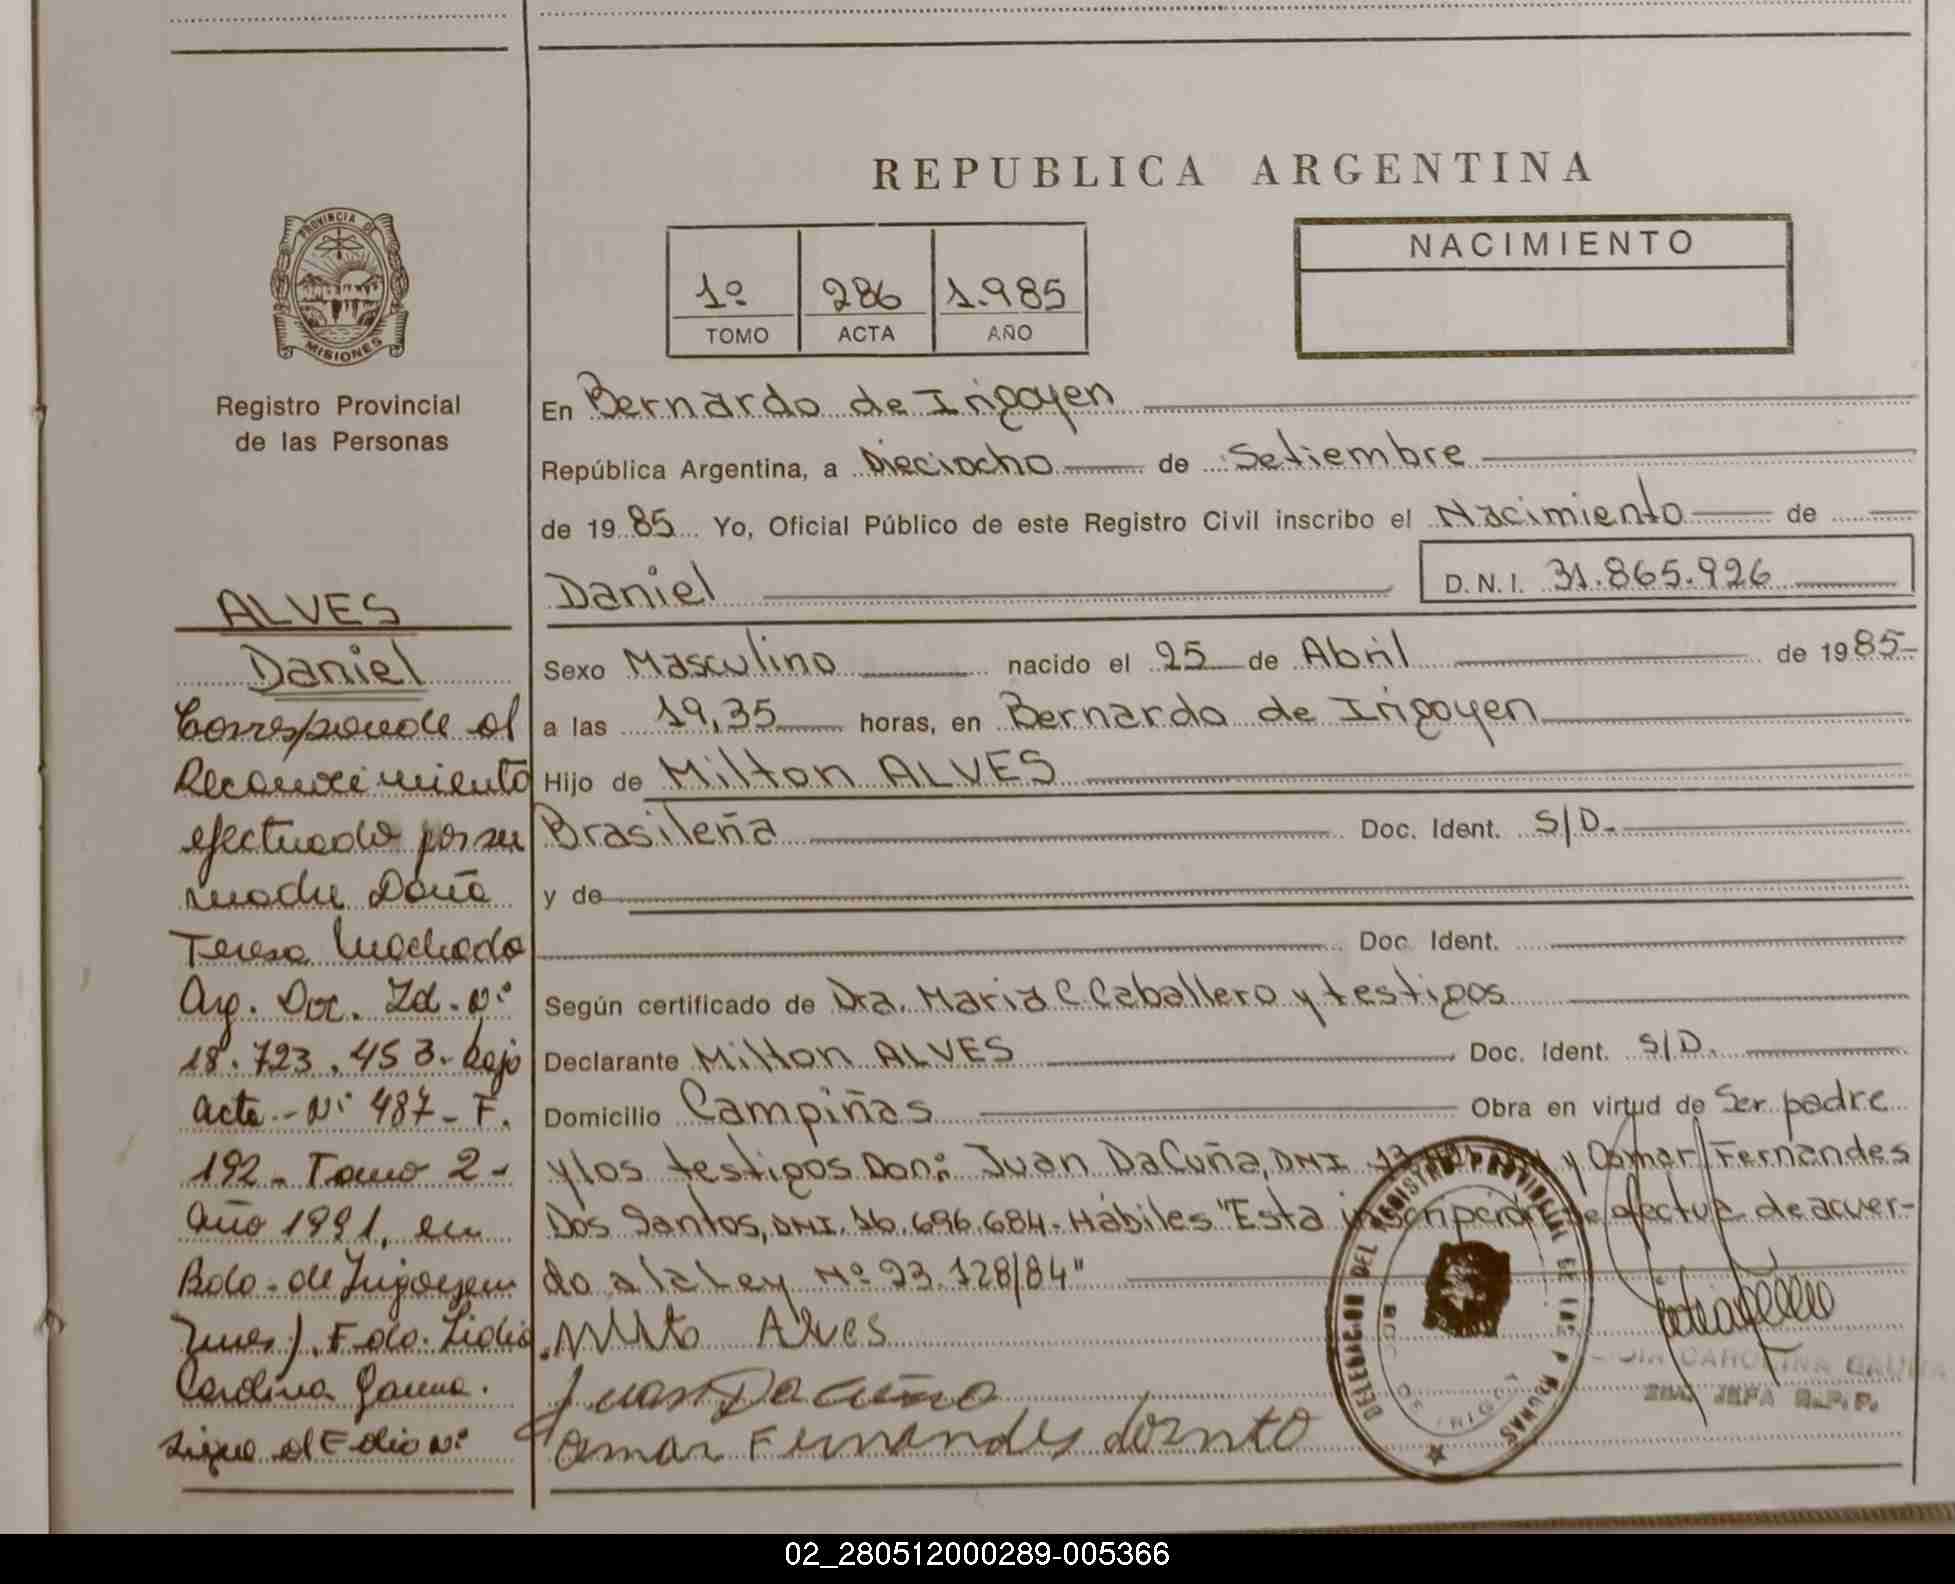 REPUBLICA ARGENTINA
PROVINCIA DE
MISIONES
Registro Provincial
de las Personas
1º 286 1.985
TOMO ACTA AÑO
NACIMIENTO
En Bernardo de Irigoyen
República Argentina, a Dieciocho de Setiembre
de 1985 Yo, Oficial Público de este Registro Civil inscribo el Nacimiento de
Daniel D.N.I. 31.865.926
Sexo Masculino nacido el 25 de Abril de 1985
a las 19,35 horas, en Bernardo de Irigoyen
Hijo de Milton ALVES
Brasileña Doc. Ident. S/D.
y de
Doc. Ident.
Según certificado de Dra. Maria C Caballero y testigos
Declarante Milton ALVES Doc. Ident. S/D.
Domicilio Campiñas Obra en virtud de Ser padre
y los testigos Don: Juan DaCuña, DNI 13 y Osmar Fernandes
Dos Santos, DNI. 16.696.684. Hábiles "Esta inscripción se efectua de acuer-
do a la Ley Nº 23.128/84"
Alves
Juan Da Cuña
ALVES
Daniel
Corresponde al
Reconocimiento
efectuado por su
madre Doña
Teresa Machado
Arg. Doc. Id. Nº
18.723.453. bajo
acta - Nº 487 - F.
192 - Tomo 2 -
año 1991, en
Bdo. de Irigoyen
Mnes). Fdo. Lidia
Carolina Gauna.
sigue al Folio Nº
DELEGACION DEL REGISTRO PROVINCIAL DE LAS PERSONAS
CAROLINA GAUNA
JEFA R.P.P.
02_280512000289-005366